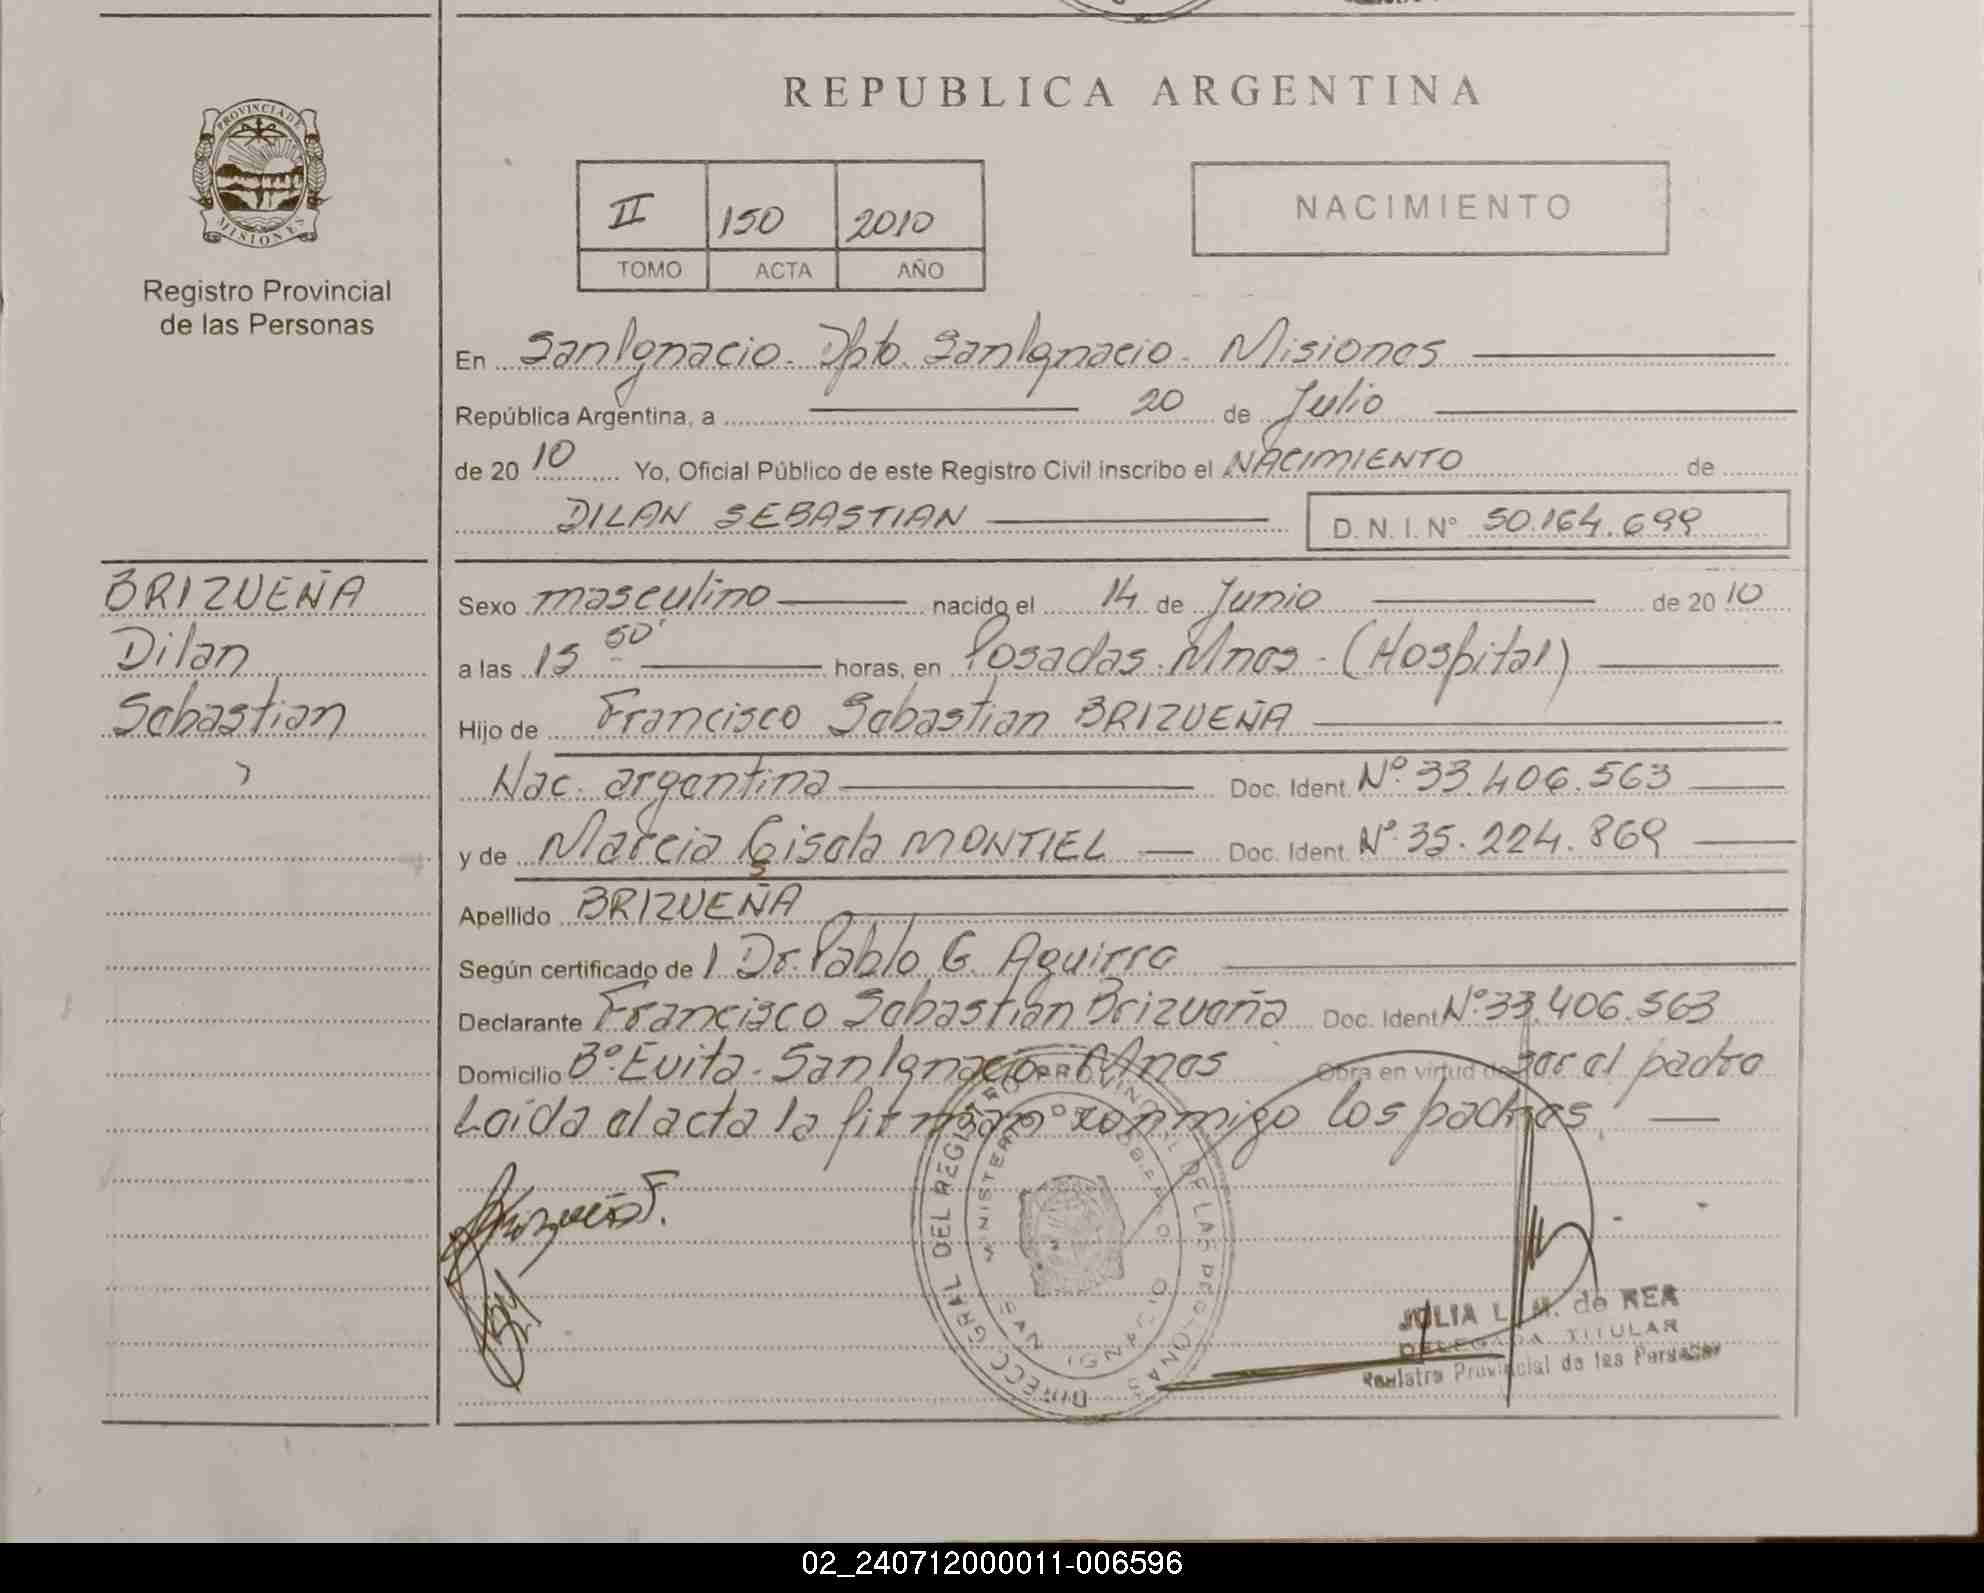 REPUBLICA ARGENTINA
PROVINCIA DE
MISIONES
Registro Provincial
de las Personas
II 150 2010
TOMO ACTA AÑO
NACIMIENTO
En San Ignacio - Dpto. San Ignacio - Misiones
República Argentina, a 20 de Julio
de 20 10 Yo, Oficial Público de este Registro Civil inscribo el NACIMIENTO de
DILAN SEBASTIAN D. N. I. N° 50.164.699
BRIZUEÑA
Dilan
Sebastian
Sexo masculino nacido el 14 de Junio de 20 10
a las 15 50' horas, en Posadas. Mnes - (Hospital)
Hijo de Francisco Sebastian BRIZUEÑA
Nac. argentina Doc. Ident. Nº 33.406.563
y de Marcia Gisela MONTIEL Doc. Ident. Nº 35.224.869
Apellido BRIZUEÑA
Según certificado de 1 Dr. Pablo G. Aguirre
Declarante Francisco Sebastian Brizueña Doc. Ident. Nº 33.406.563
Domicilio Bº Evita - San Ignacio - Mnes Obra en virtud de ser el padre
Leída el acta la firman conmigo los padres,
Brizueña F.
DIRECC. GRAL. DEL REGISTRO PROVINCIAL DE LAS PERSONAS
MINISTERIO DE GOBIERNO
SAN IGNACIO
JULIA L. M. de REA
DELEGADA TITULAR
Registro Provincial de las Personas
02_240712000011-006596